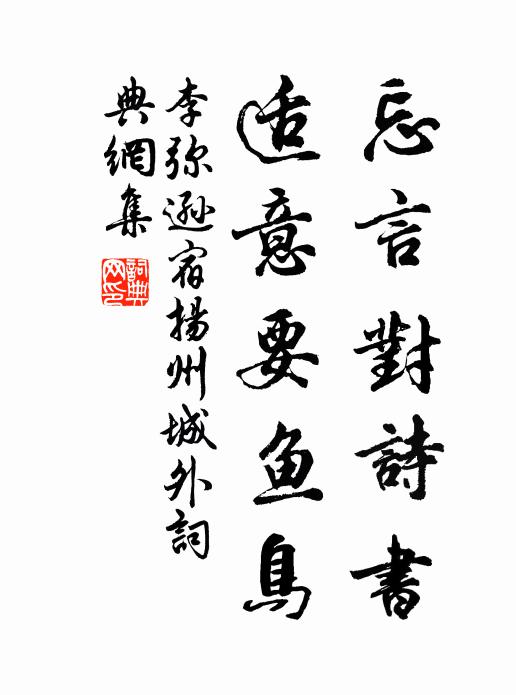 忘言對詩書
适意要鱼鳥
李弥遜宿揚州城外詞
典網集
詞典
网印